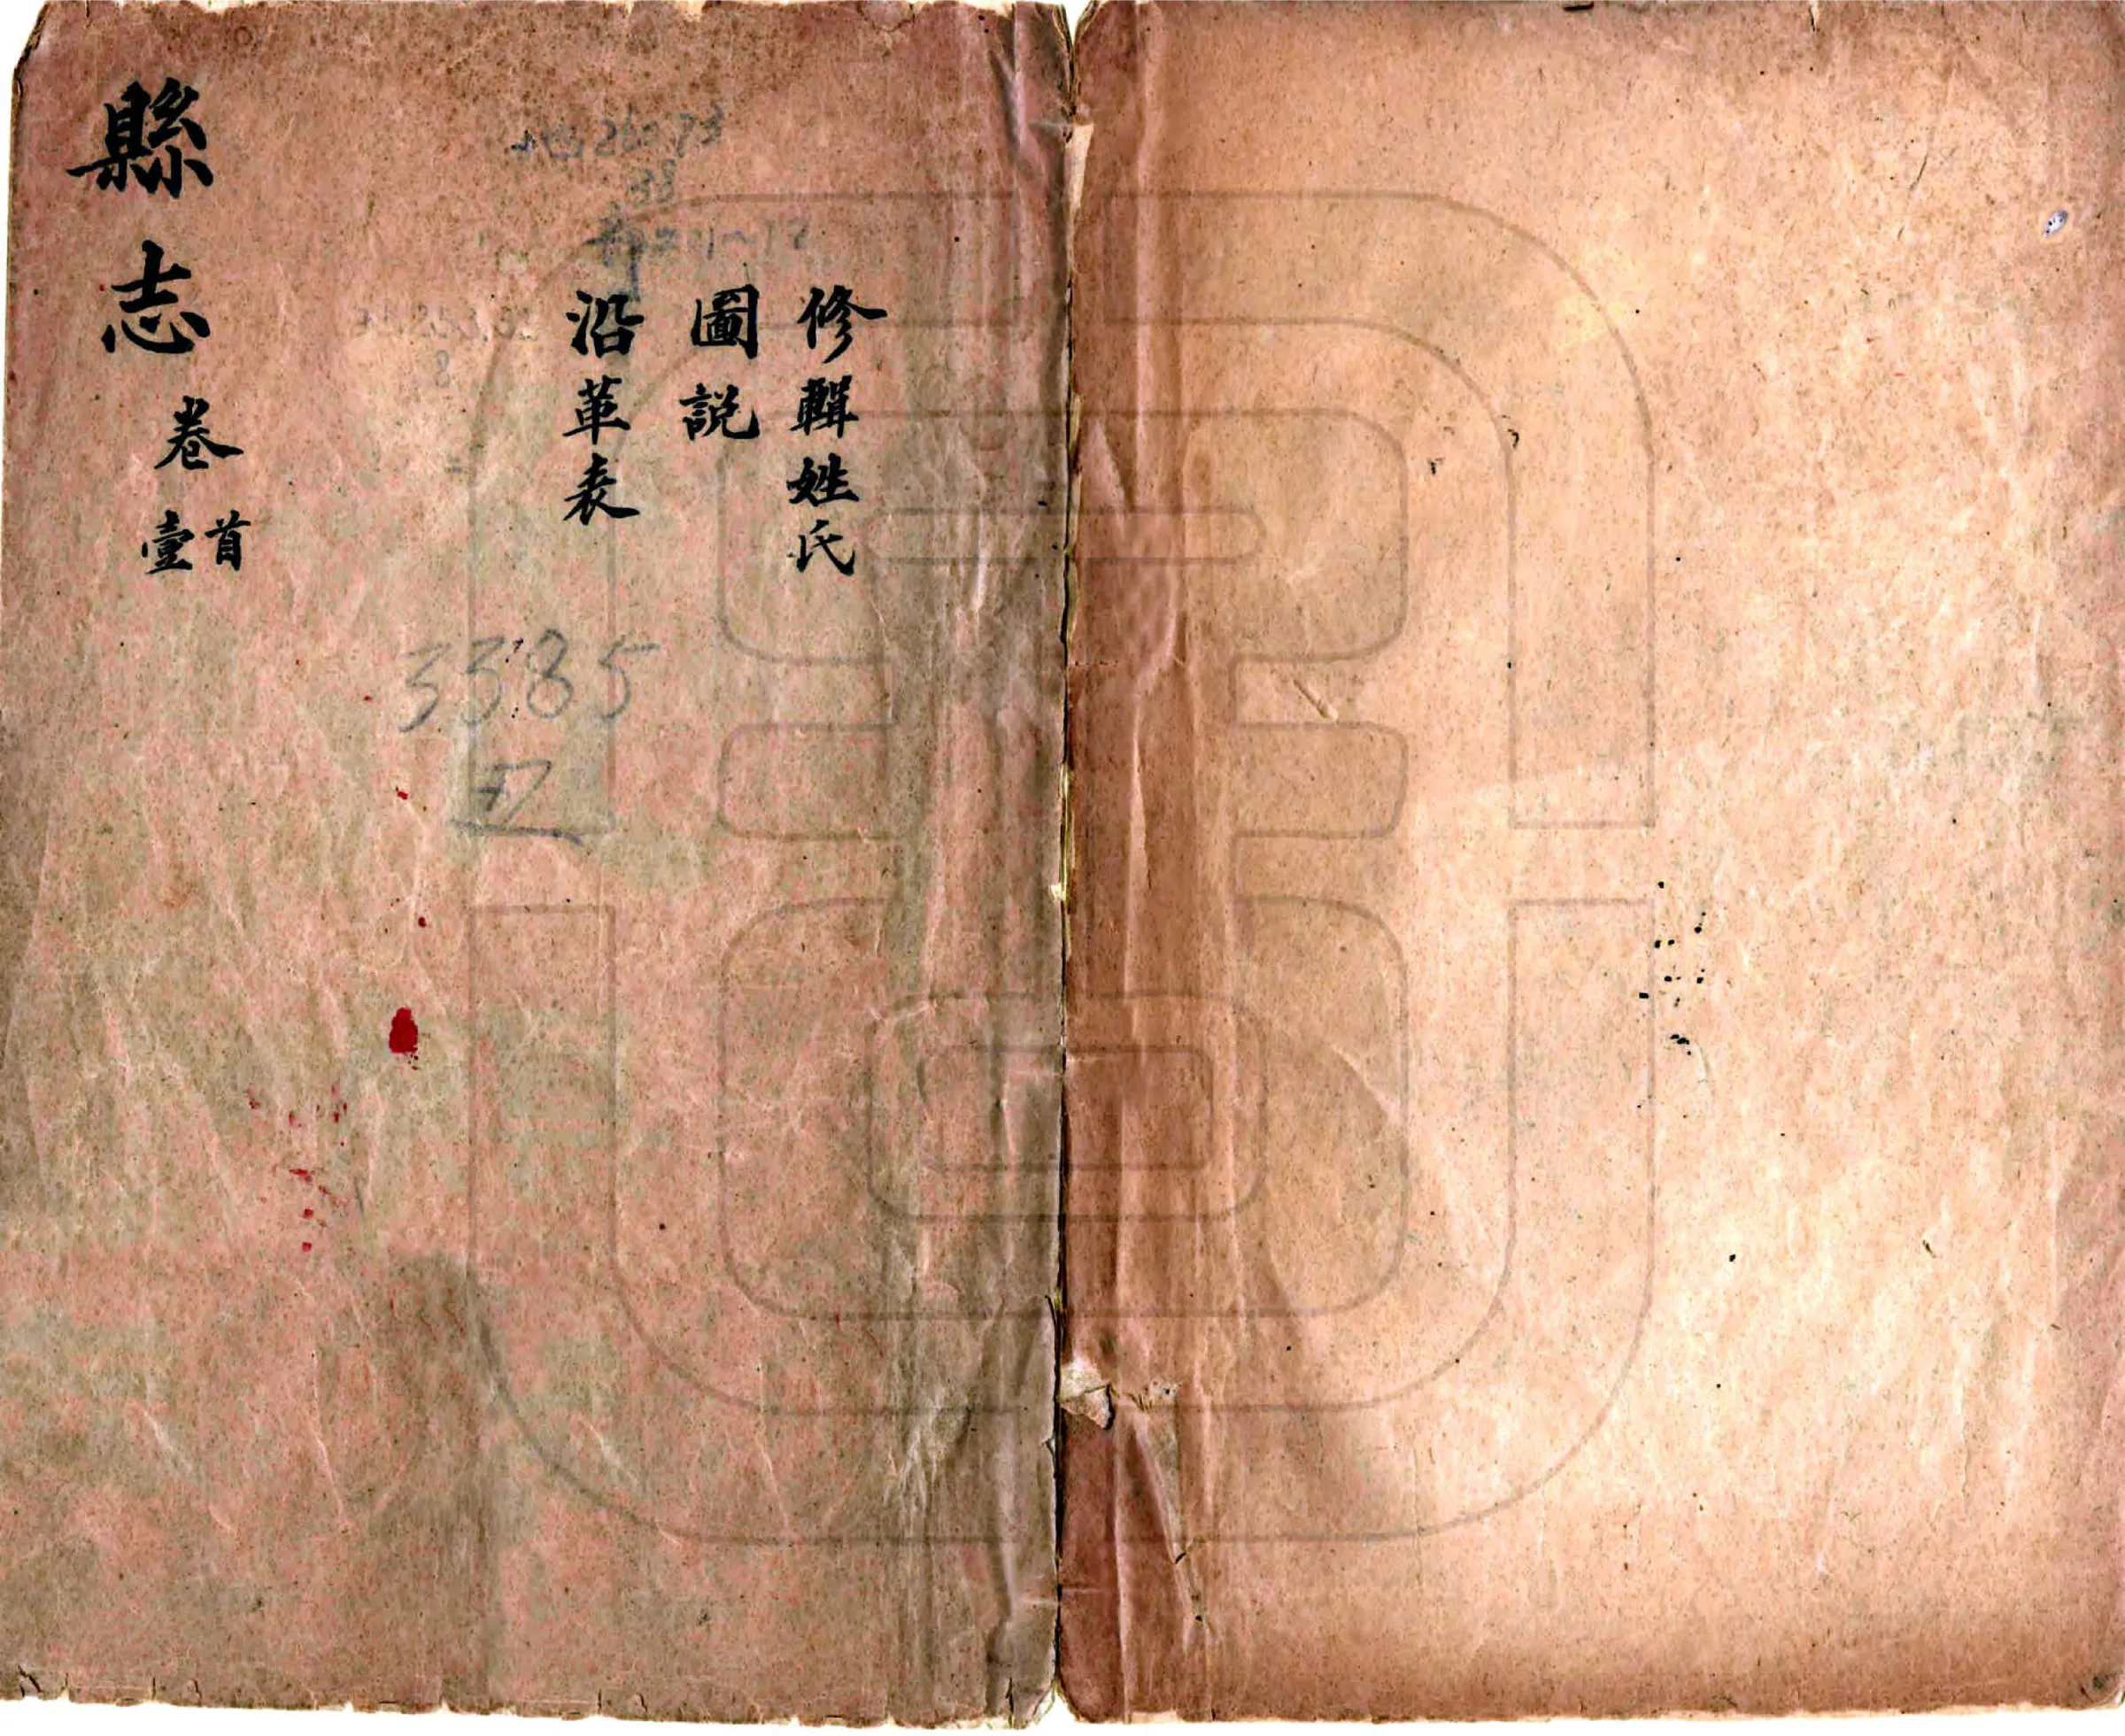 修輯姓氏
圖說
沿革表
縣志 卷首壹
3385